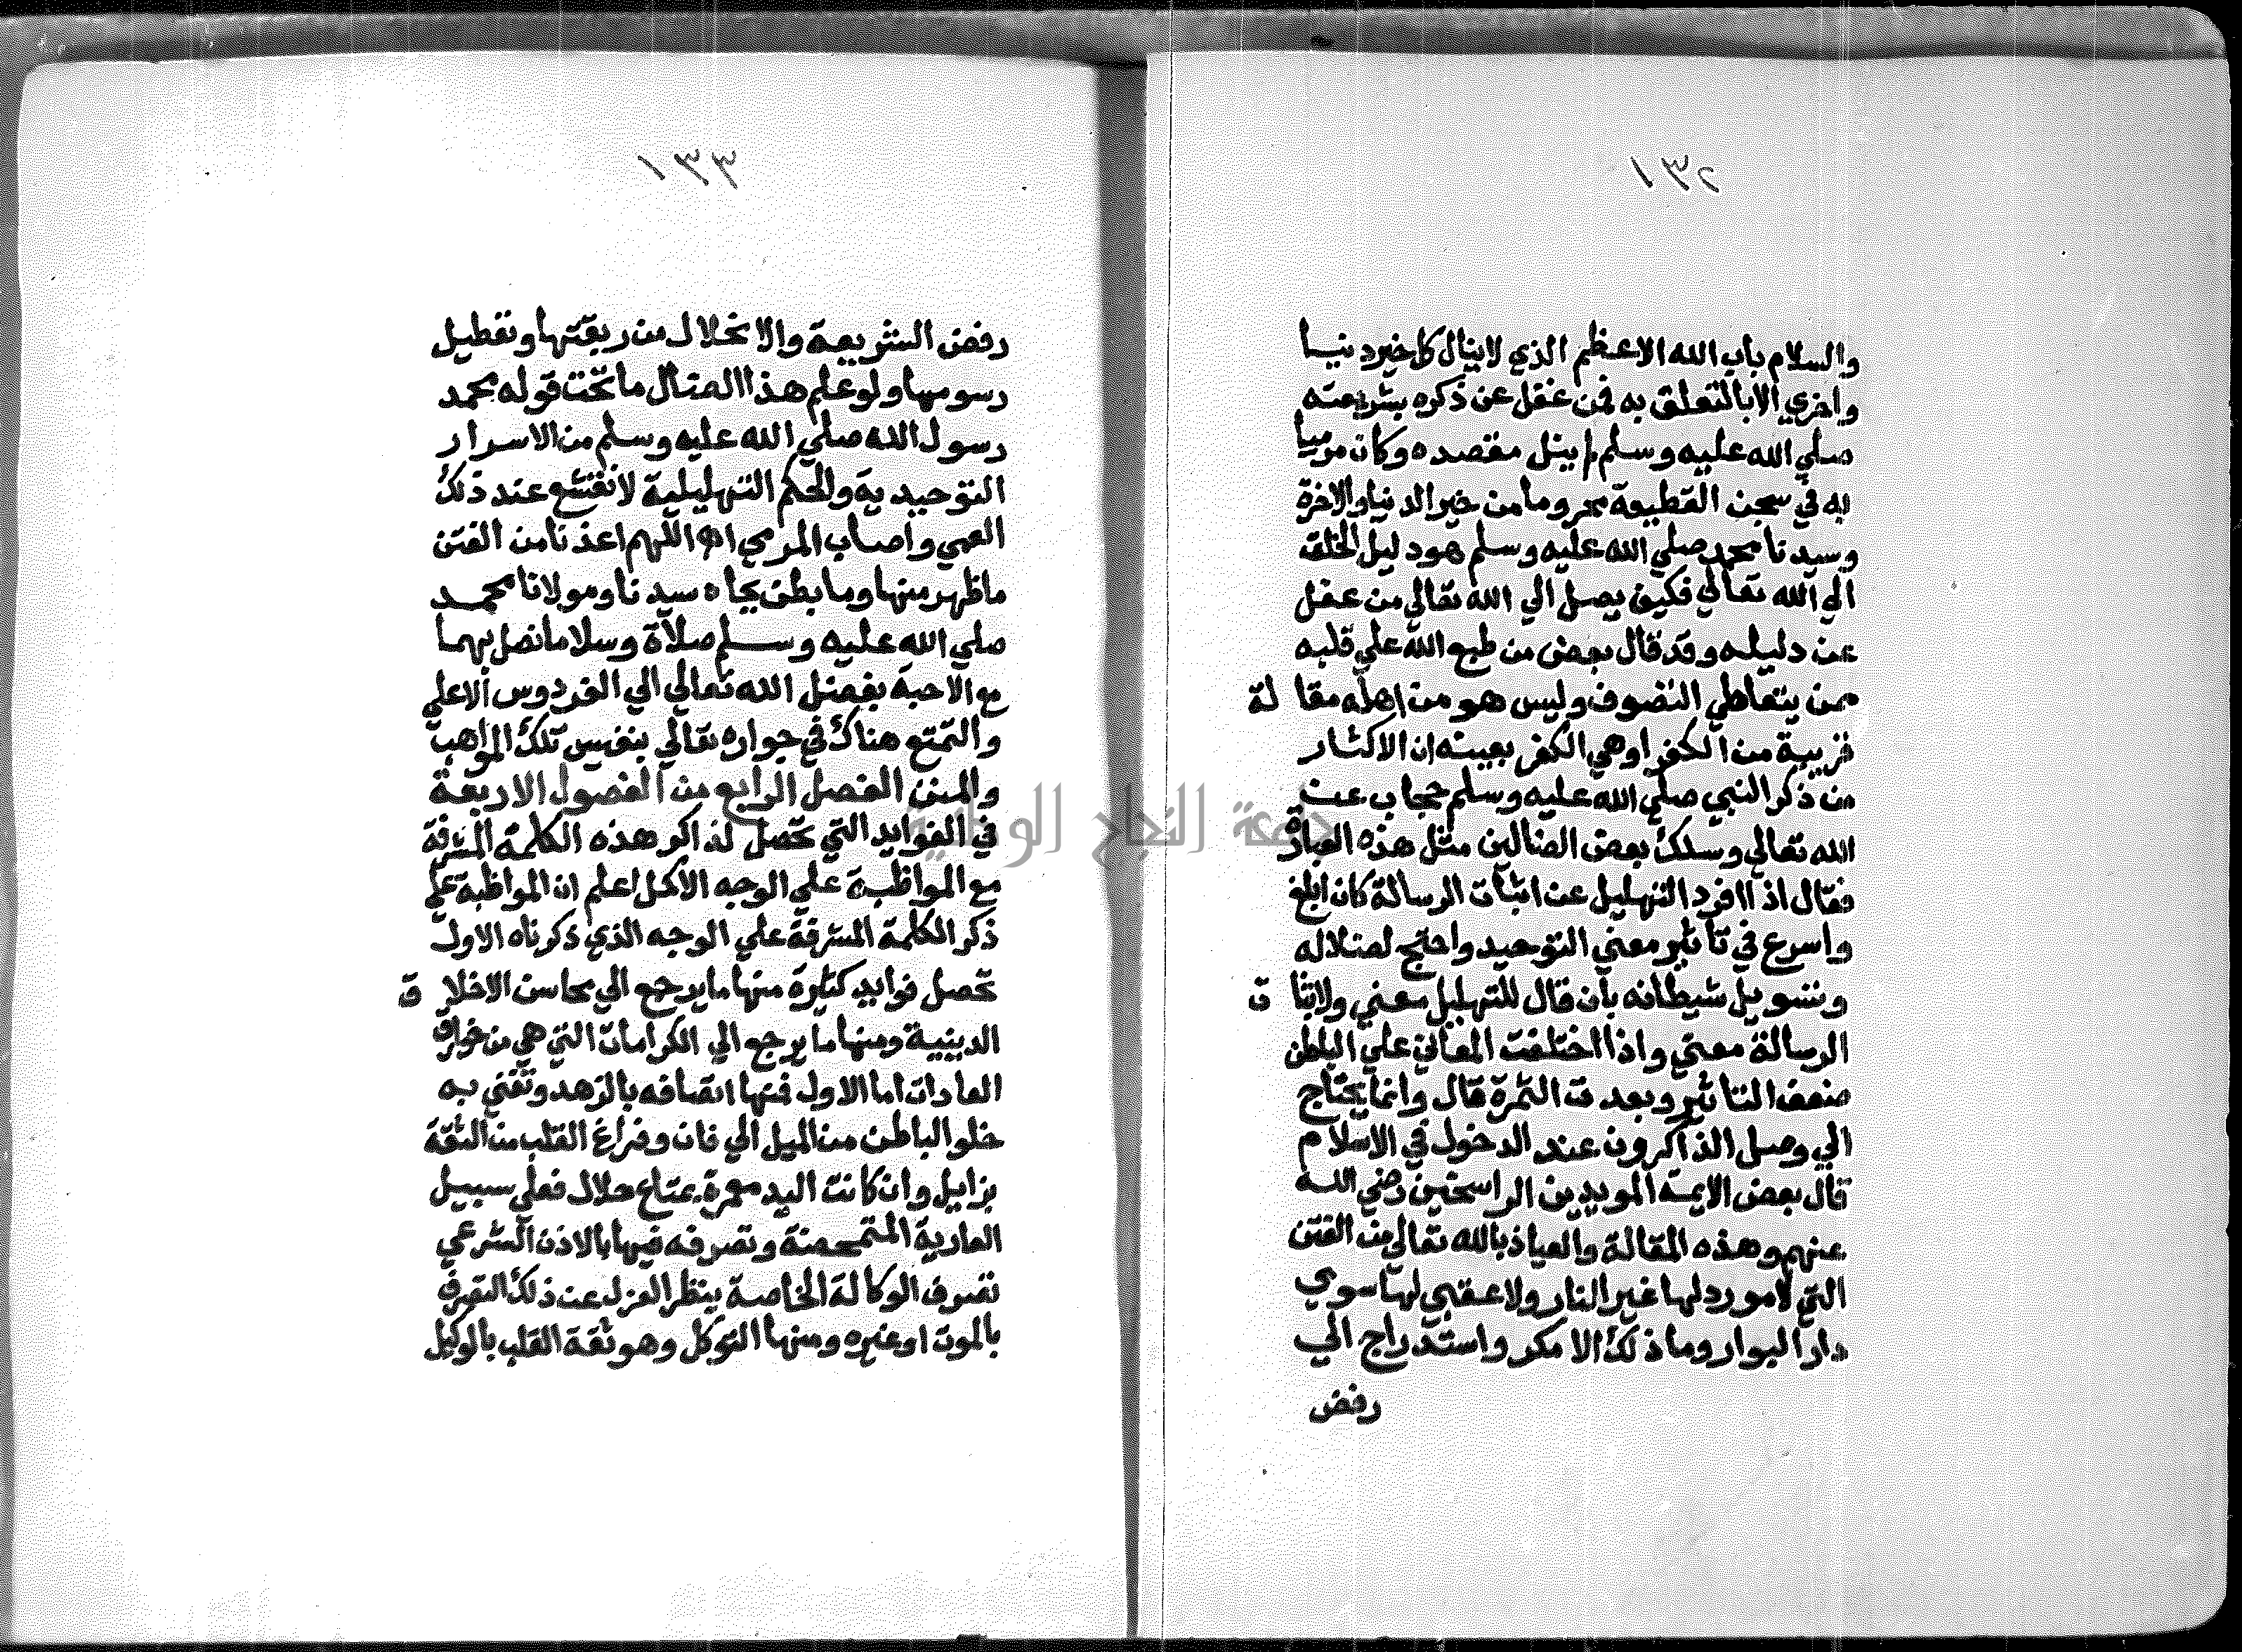 ١٣٢
والسلام باب الله الاعظم الذي لا ينال كل خير دنيا
واخري الا بالتعلق به فمن غفل عن ذكره بشريعته
صلي الله عليه وسلم لم ينل مقصده وكان مرميا
به في سجن القطيعة محروما من خير الدنيا والاخرة
وسيدنا محمد صلي الله عليه وسلم هو دليل الخلق
الي الله تعالي فكيف يصل الي الله تعالي من غفل
عن دليله وقد قال بعض من طبع الله علي قلبه
ممن يتعاطي التصوف وليس هو من اهله مقا لة
قريبة من الكفر او هي الكفر بعينه ان الاكثار
من ذكر النبي صلي الله عليه وسلم حجاب عن
الله تعالي وسلك بعض الضالين مثل هذه العبارة
فقال اذا افرد التهليل عن اثبات الرسالة كان ابلغ
واسرع في تاثير معني التوحيد واحتج لضلاله
وتسويل شيطانه بان قال للتهليل معني ولاثبا ت
الرسالة معني واذا اختلفت المعاني علي الباطن
ضعف التاثير وبعدت الثمرة قال وانما يحتاج
الي وصل الذاكرون عند الدخول في الاسلام
قال بعض الايمة المويدين الراسخين رضي الله
عنهم وهذه المقالة والعياذ بالله تعالي من الفتن
التي لا مورد لها غير النار ولا عقبي لها سوي
دار البوار وما ذلك الا مكر واستدراج الي
رفض
١٣٣
رفض الشريعة والانحلال من ربقتها وتعطيل
رسومها ولو علم هذا الضال ما تحت قوله محمد
رسول الله صلي الله عليه وسلم من الاسرار
التوحيدية والحكم التهليلية لانقشع عند ذلك
العمي واصاب المرمي اه اللهم اعذنا من الفتن
ما ظهر منها وما بطن بجاه سيدنا ومولانا محمد
صلي الله عليه وسلم صلاة وسلاما نصل بهما
مع الاحبة بفضل الله تعالي الي الفردوس الاعلي
والتمتع هناك في جواره تعالي بنفيس تلك المواهب
والمنن الفصل الرابع من الفصول الاربعة
في الفوايد التي تحصل لذاكر هذه الكلمة المشرفة
مع المواظبة علي الوجه الاكمل اعلم ان المواظبة علي
ذكر الكلمة المشرفة علي الوجه الذي ذكرناه الاول
تحصل فوايد كثيرة منها ما يرجع الي محاسن الاخلا ق
الدينية ومنها ما يرجع الي الكرامات التي هي من خوارق
العادات اما الاول فمنها اتصافه بالزهد ونعني به
خلو الباطن من الميل الي فان وفراغ القلب من الثقة
بزايل وان كانت اليد معمرة بمتاع حلال فعلي سبيل
العارية المتمحضة وتصرفه فيها بالاذن الشرعي
تصرف الوكالة الخاصة ينتظر العزل عن ذلك التصرف
بالموت او غيره ومنها التوكل وهو ثقة القلب بالوكيل
جامعة النجاح الوطنية